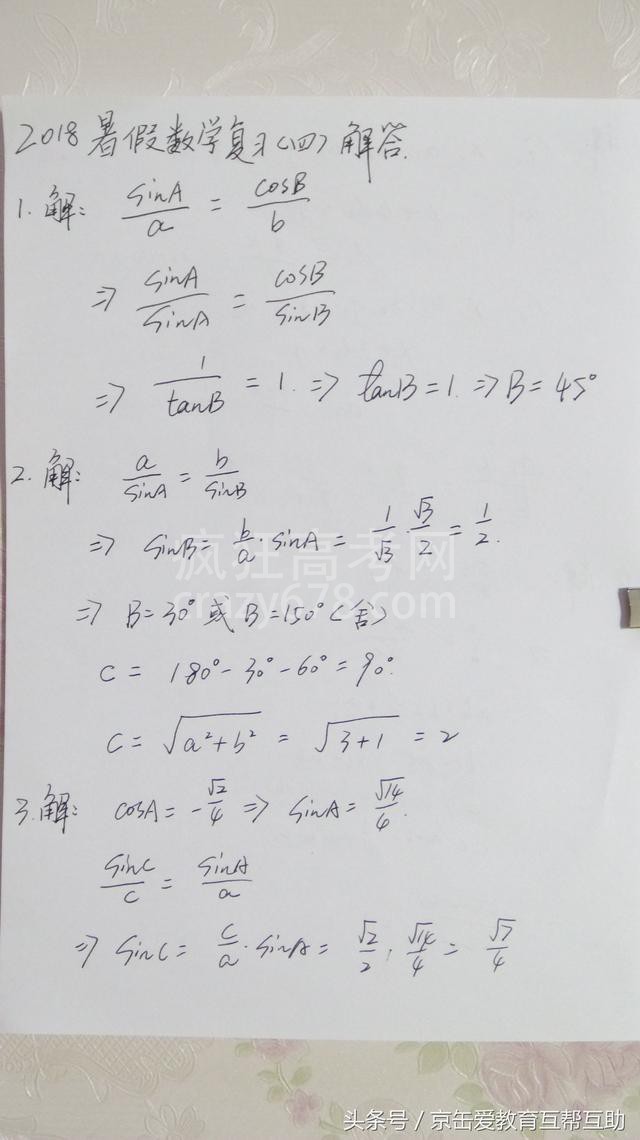 2018暑假数学复习(四)解答.
1. 解: sinA/a = cosB/b
⇒ sinA/sinA = cosB/sinB
⇒ 1/tanB = 1. ⇒ tanB=1. ⇒ B=45°
2. 解: a/sinA = b/sinB
⇒ sinB = b/a · sinA = 1/√3 · √3/2 = 1/2.
疯狂高考网
crazy678.com
⇒ B=30° 或 B=150°(舍)
C = 180°-30°-60° = 90°.
c = √(a²+b²) = √(3+1) = 2
3. 解: cosA = -√2/4 ⇒ sinA = √14/4.
sinC/c = sinA/a
⇒ sinC = c/a · sinA = √2/2 · √14/4 = √7/4
头条号／京缶爱教育互帮互助